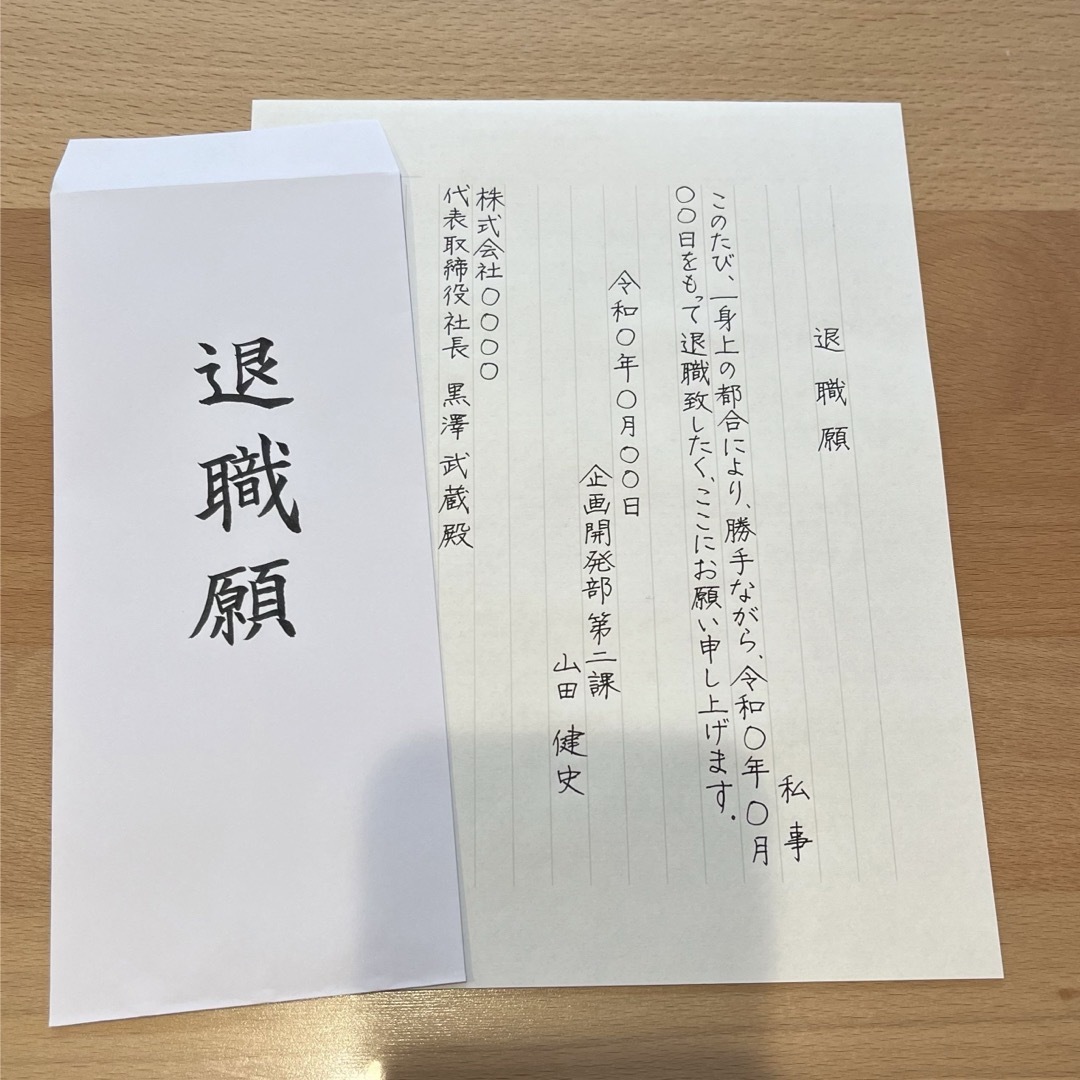 退職願
退職願
私事
このたび、一身上の都合により、勝手ながら、令和〇年〇月
〇〇日をもって退職致したく、ここにお願い申し上げます。
令和〇年〇月〇〇日
企画開発部第二課
山田 健史
株式会社〇〇〇〇
代表取締役社長 黒澤 武蔵 殿